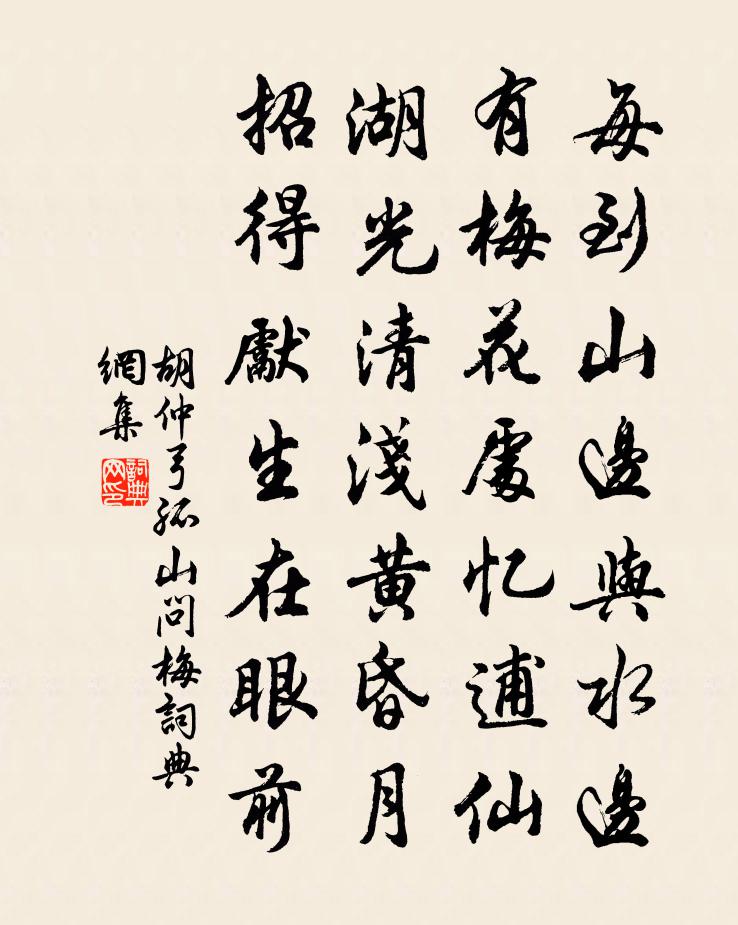 每到山邊與水邊
有梅花處忆逋仙
湖光清淺黃昏月
招得獻生在眼前
胡仲弓孤山問梅詞典
網集
詞典
网印